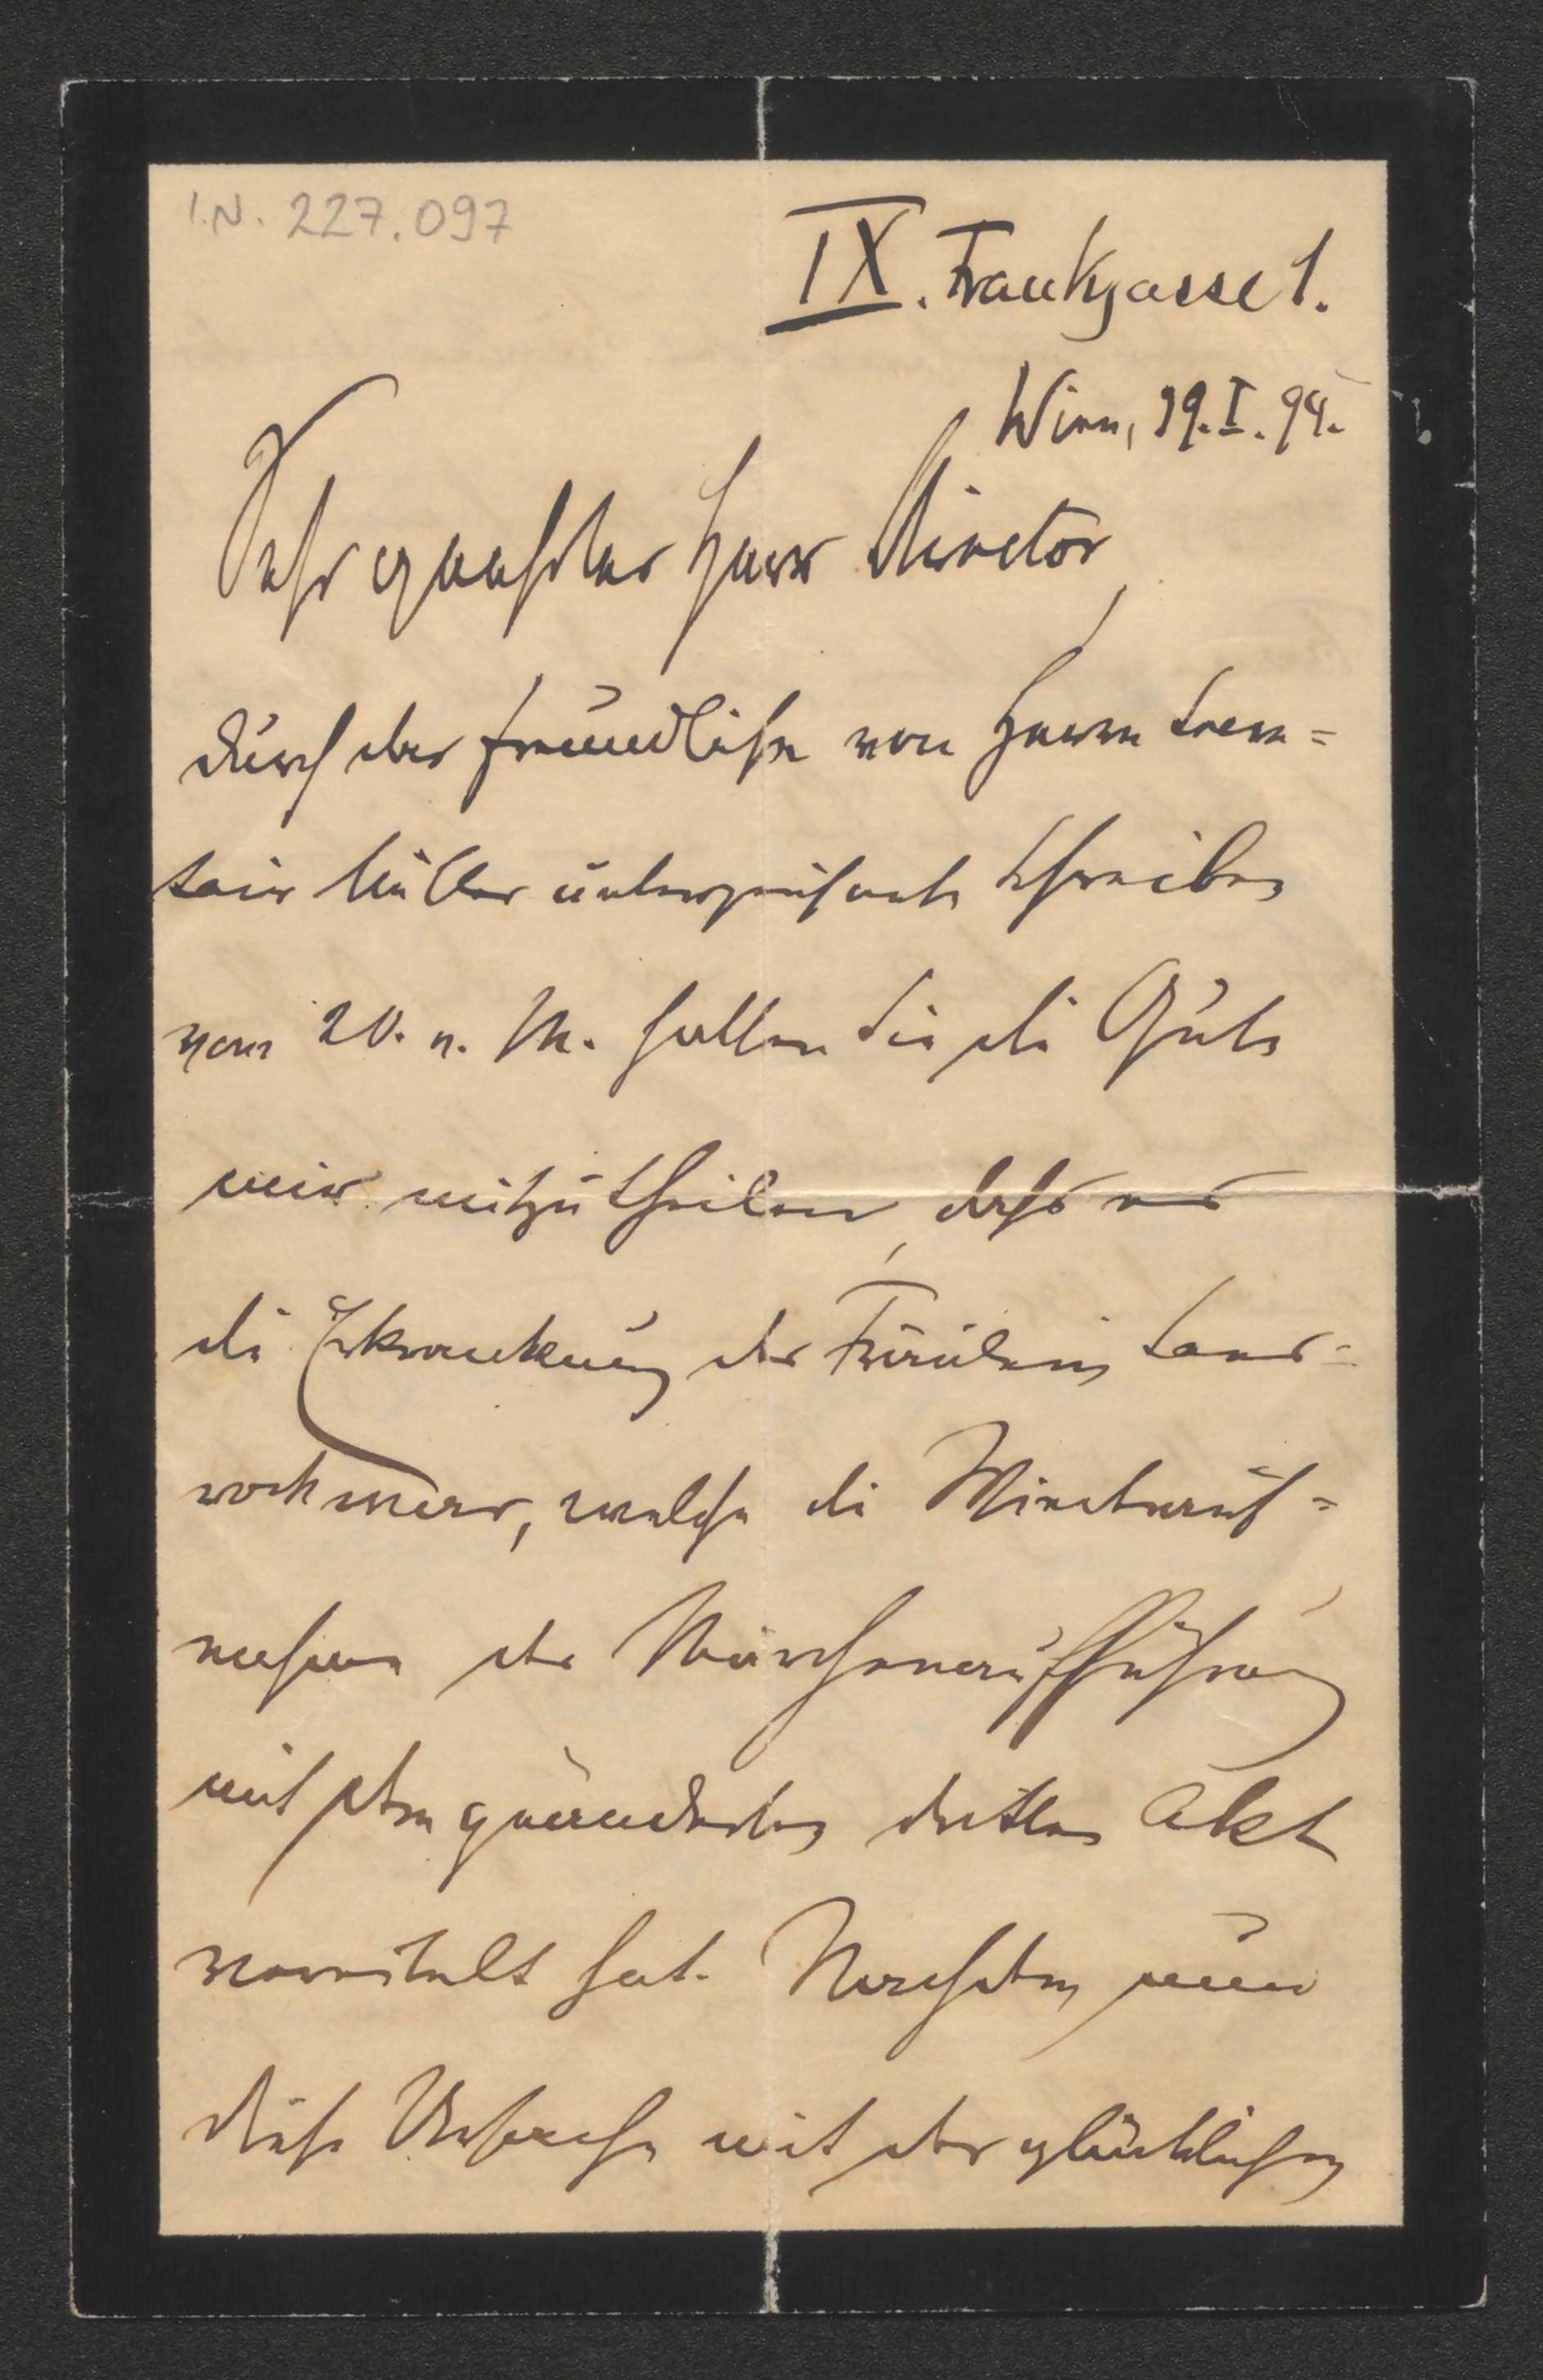 I.N. 227.097
IX. Frankgasse 1.
Wien, 19.I.94.
Sehr geehrter Herr Director,
durch das freundliche von Herrn Secre=
tair Müller unterzeichnete Schreiben
vom 20. v. M. hatten Sie die Güte
mir mitzutheilen, dass nur
die Erkrankung des Fräulein Sand=
rock war, welche die Wiederauf=
nahme der Märchenaufführung
mit dem geänderten dritten Akt
vereitelt hat. Nachdem nun
diese Ursache mit der glücklichen